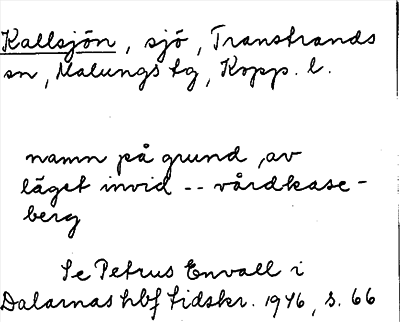 Kallsjön, sjö, Transtrands
sn, Malungs tg, Kopp. l.
namn på grund, av
läget invid -- vårdkase-
berg
Se Petrus Envall i
Dalarnas hbf tidskr. 1946, s. 66